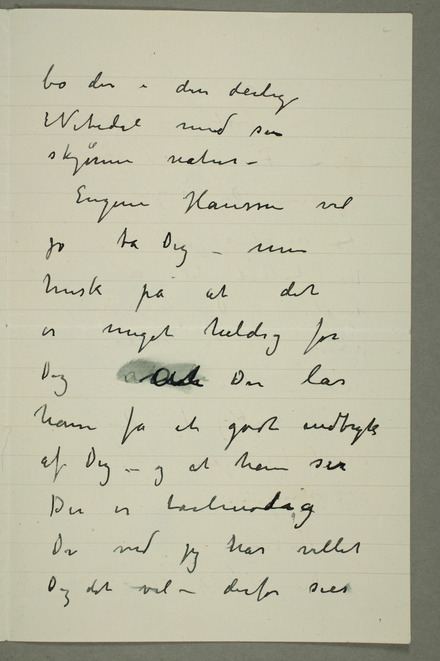 bo der i den deilige
Nitedal med sin
skjønne natur –
Eugene Hanssen vil
jo ta Dig – men
husk på at det
er meget heldig for
Dig at Du lar
ham få et godt indtryk
af Dig – og at ham ser
Du er taalmodig
Du ved jeg har villet
Dig det vel – derfor